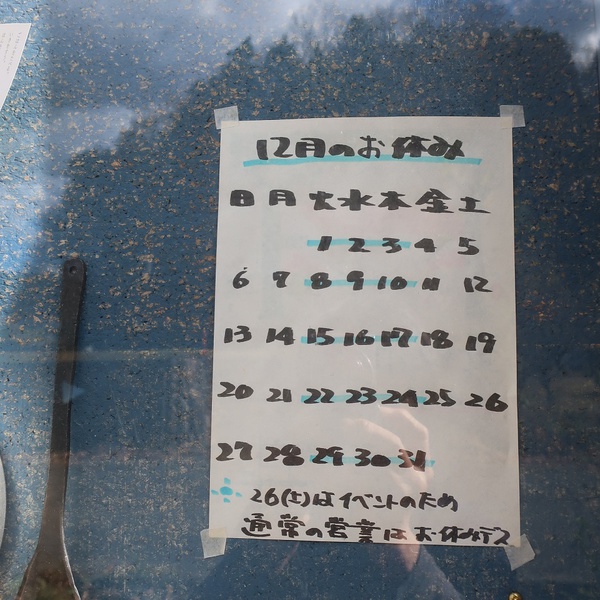 12月のお休み
日 月 火 水 木 金 土
1 2 3 4 5
6 7 8 9 10 11 12
13 14 15 16 17 18 19
20 21 22 23 24 25 26
27 28 29 30 31
※ 26(土)はイベントのため
通常の営業はお休みデス